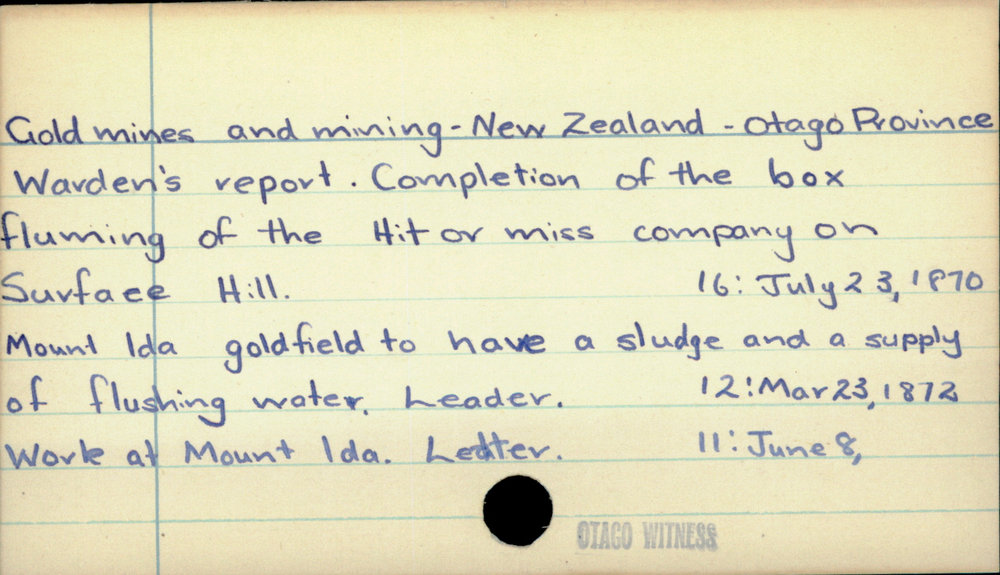 Gold mines and mining - New Zealand - Otago Province
Warden's report. Completion of the box
fluming of the Hit or miss company on
Surface Hill. 16: July 23, 1870
Mount Ida goldfield to have a sludge and a supply
of flushing water. Leader. 12: Mar 23, 1872
Work at Mount Ida. Letter. 11: June 8,
OTAGO WITNESS